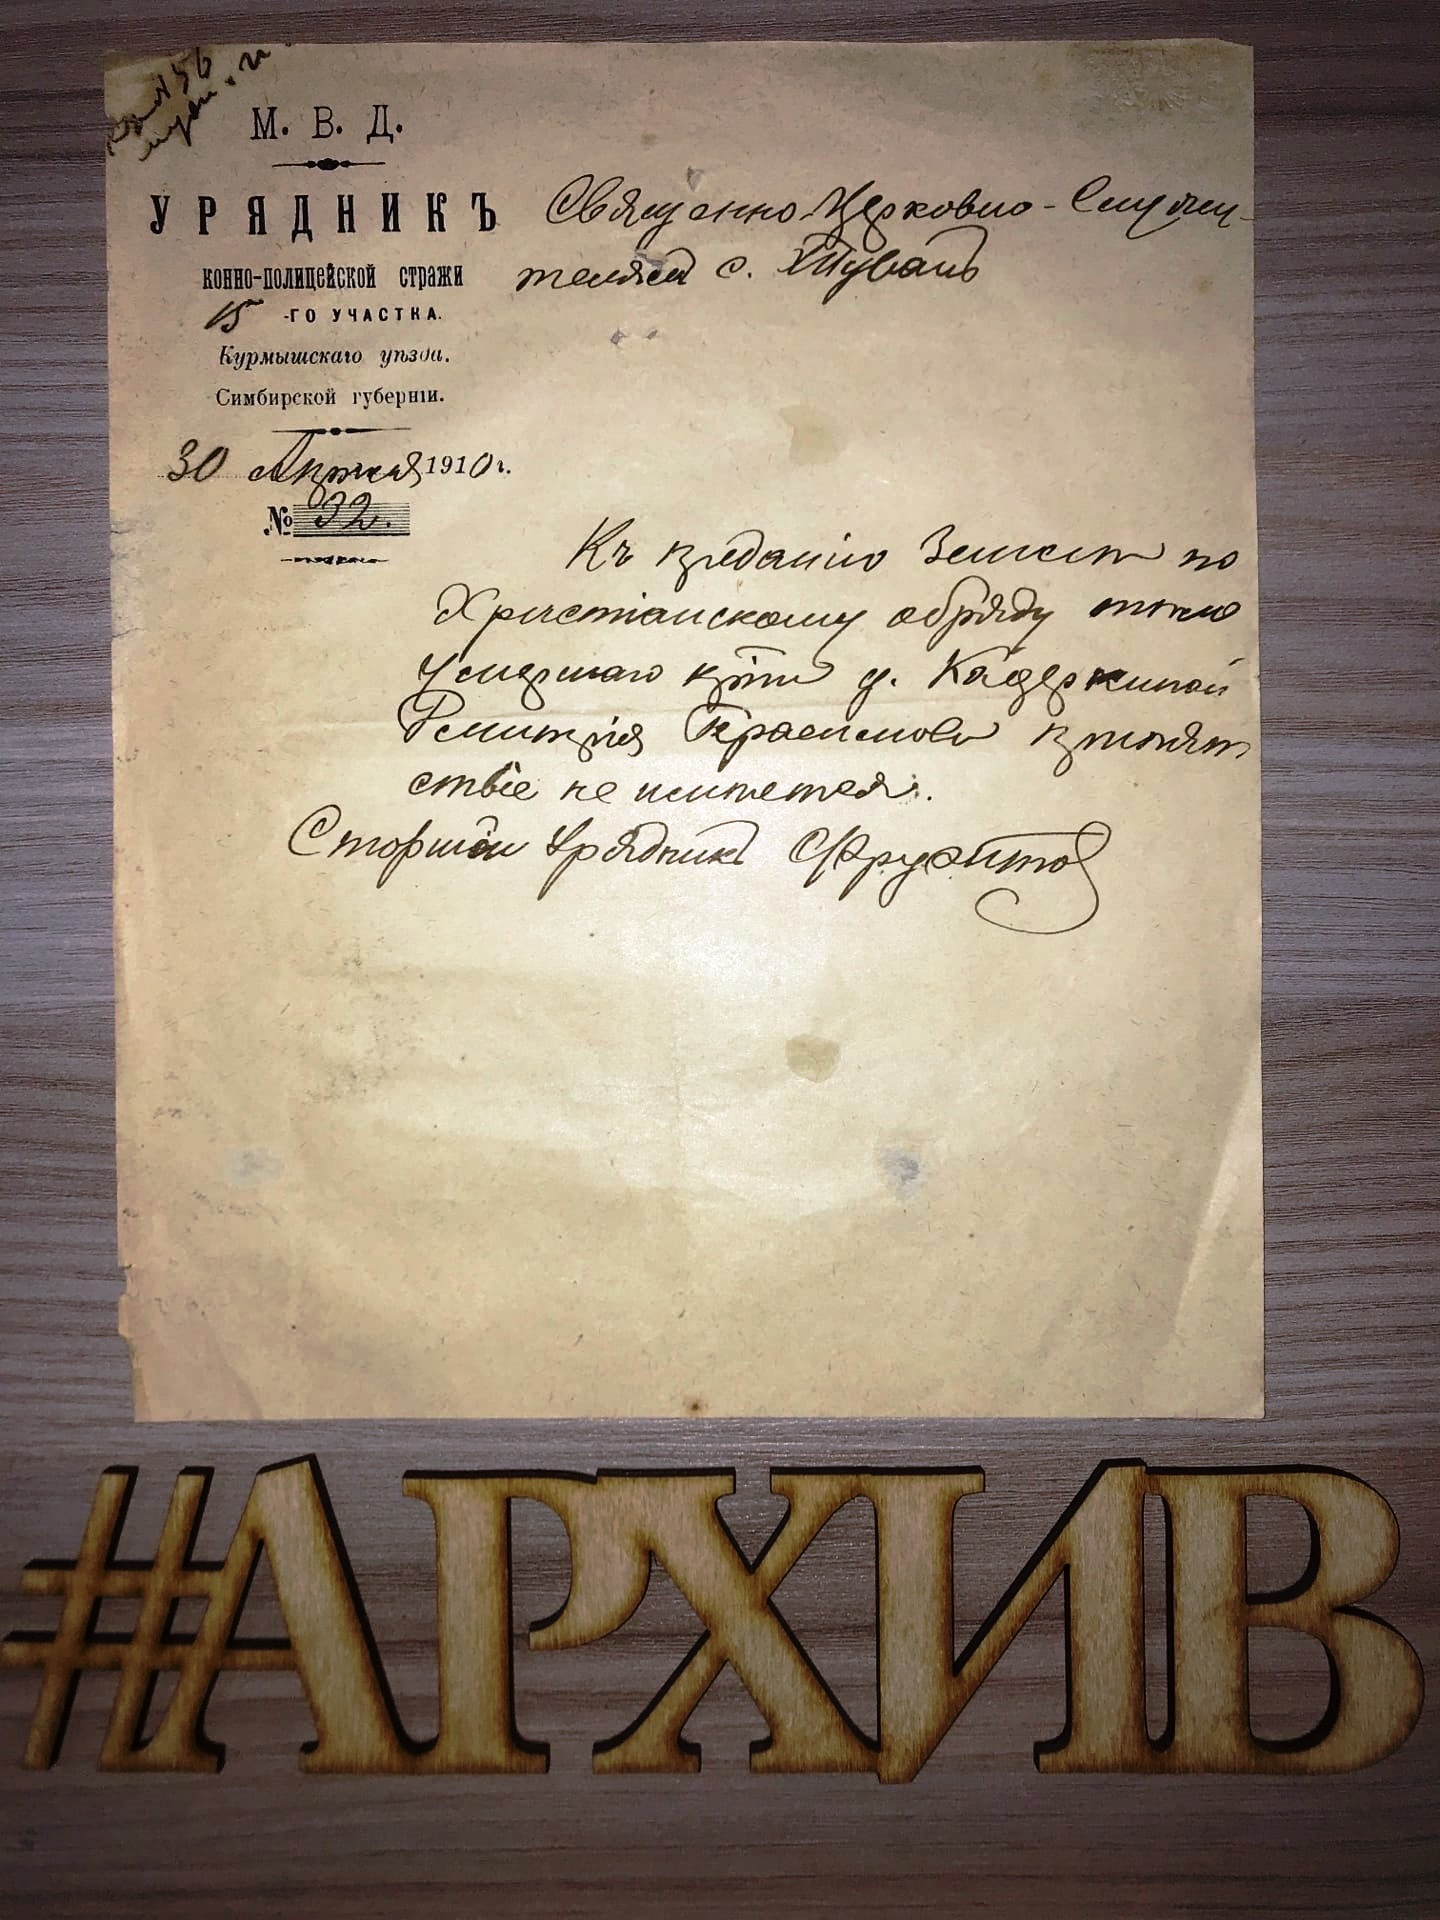 М. В. Д.
УРЯДНИКЪ
конно-полицейской стражи
15 -ГО УЧАСТКА.
Курмышскаго уѣзда.
Симбирской губернiи.
30 Апреля 1910 г.
№ 32.
Священно-Церковно-Служи-
телямъ с. Туванъ
Къ преданiю Земле по
Христiанскому обряду тело
умершаго кр. д. Кадеркиной
Герасимова препят
ствiе не имеется.
Старшiй Урядникъ
#АРХИВ